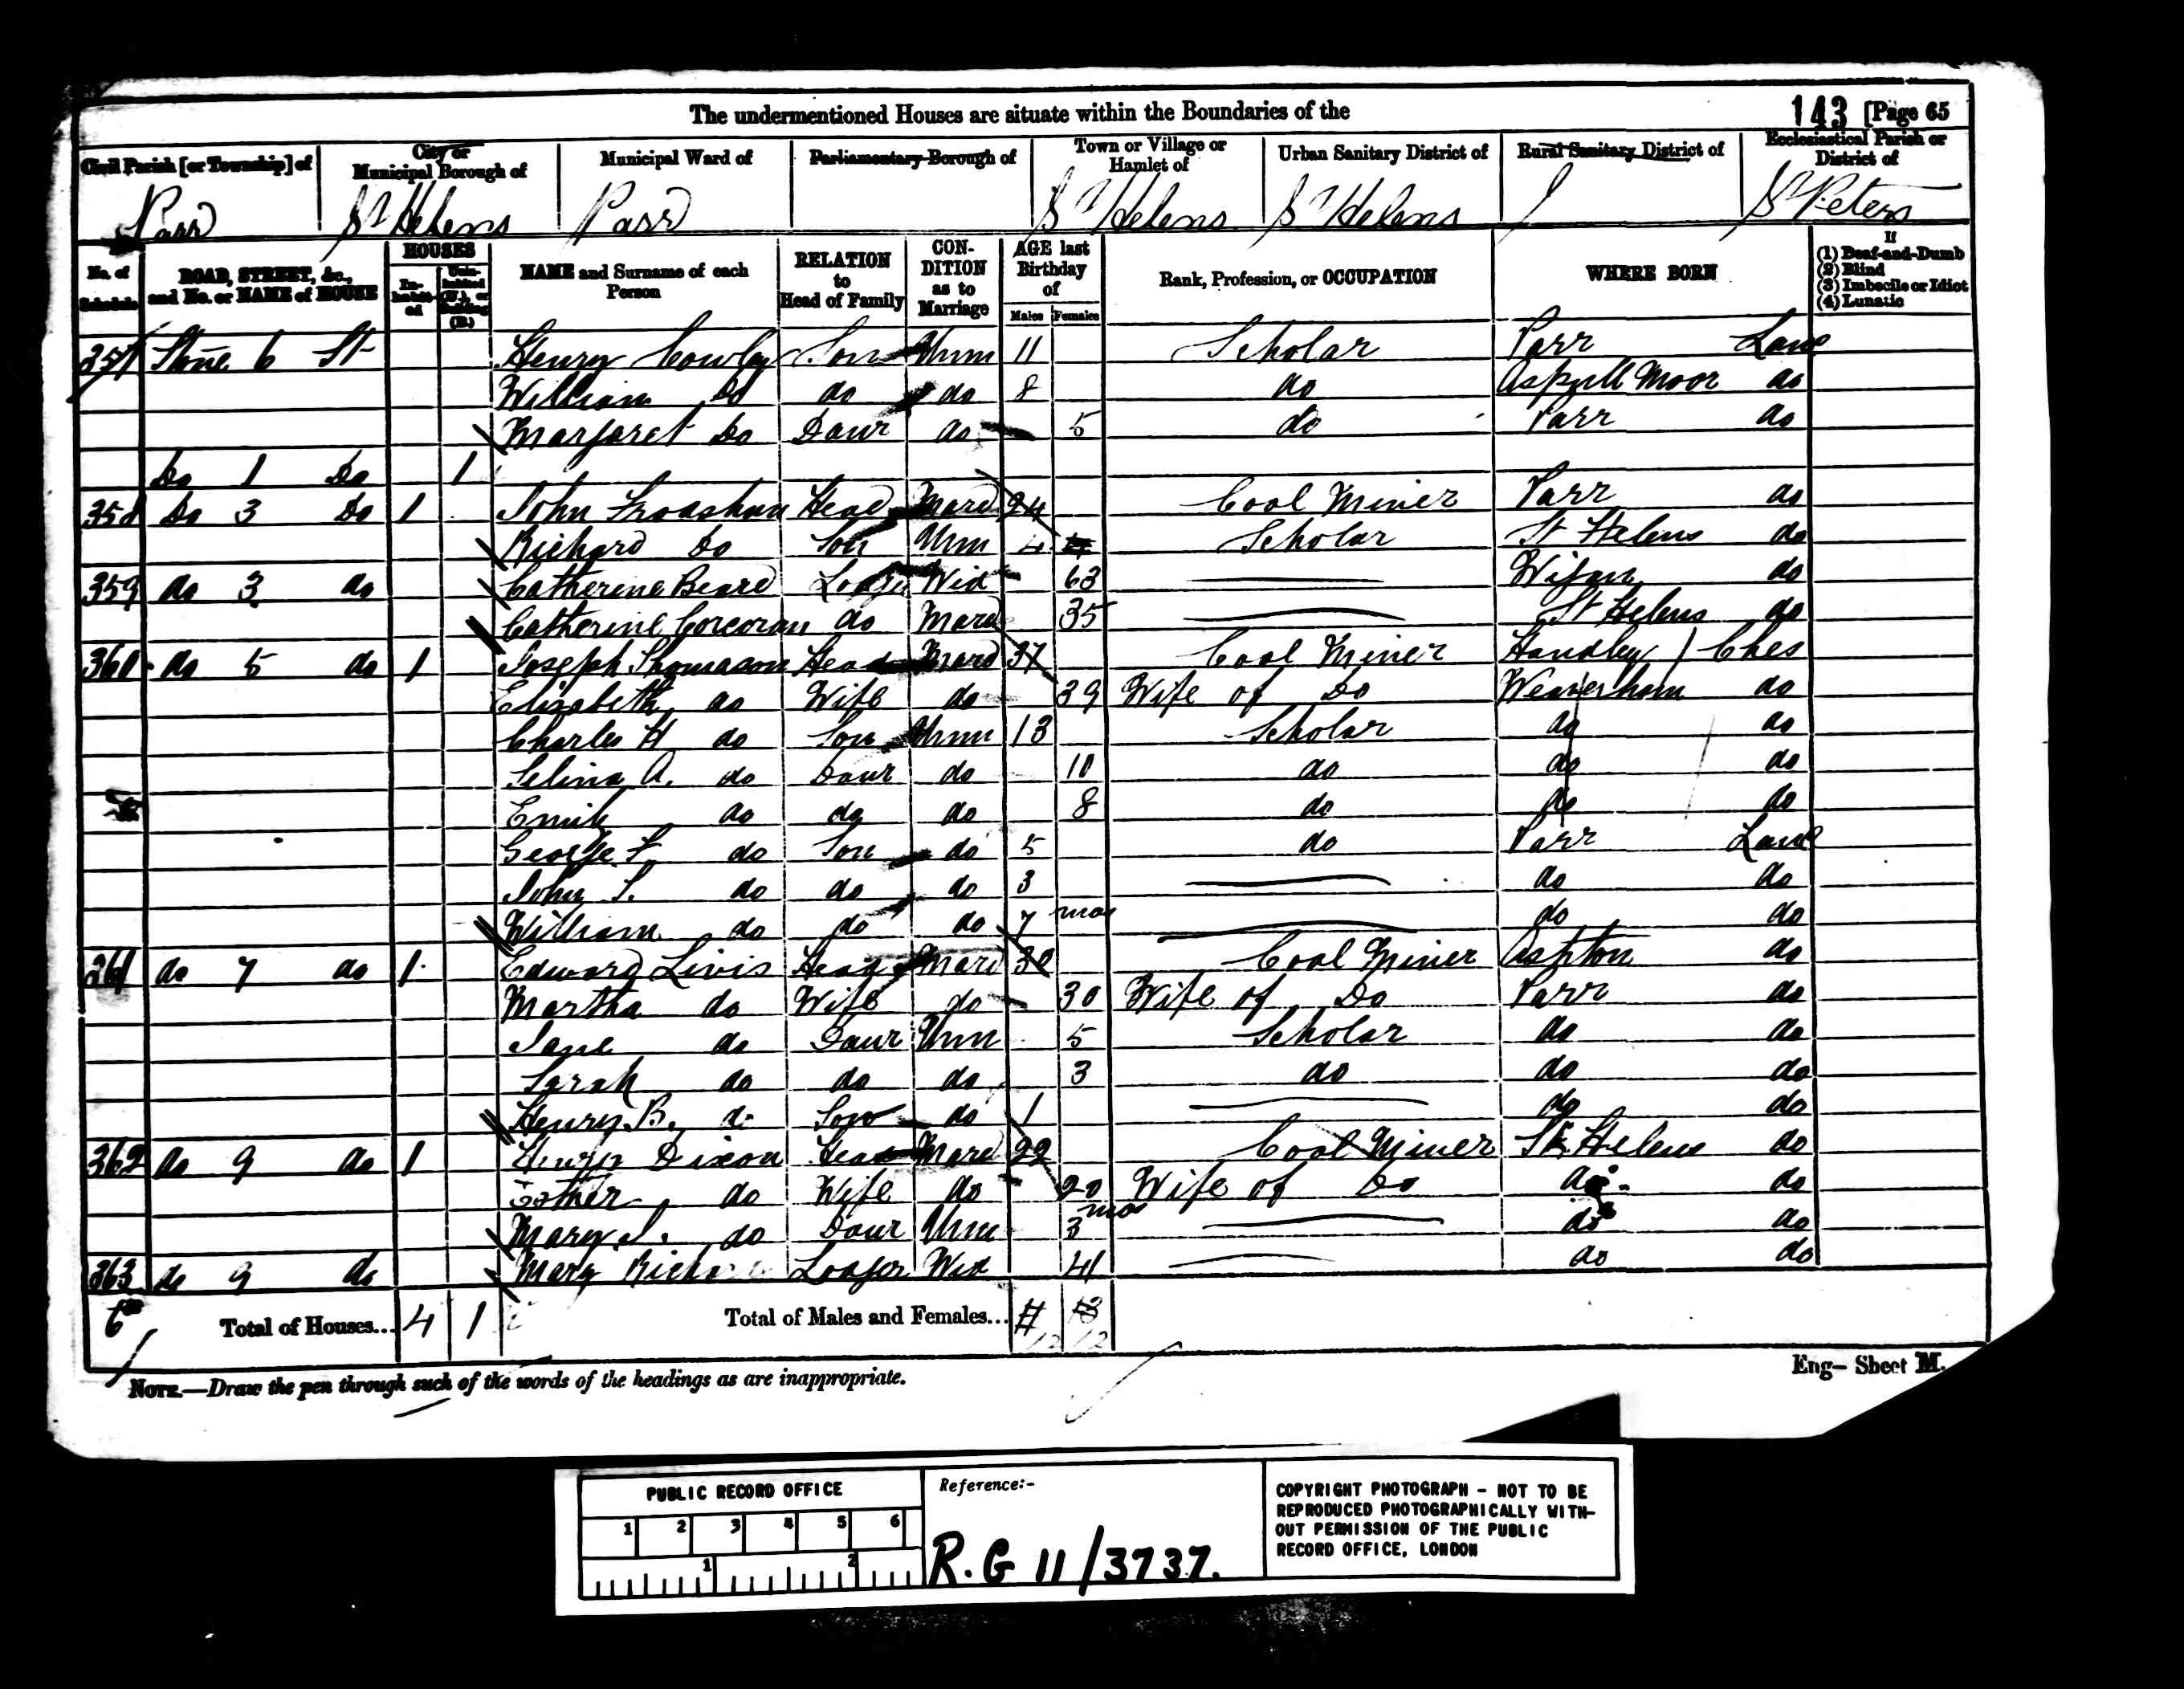 The undermentioned Houses are situate within the Boundaries of the
143 [Page 65
Civil Parish [or Township] of
City or Municipal Borough of
Municipal Ward of
Parliamentary Borough of
Town or Village or Hamlet of
Urban Sanitary District of
Rural Sanitary District of
Ecclesiastical Parish or District of
Parr St Helens Parr St Helens St Helens / St Peters
No. of Schedule
ROAD, STREET, &c., and No. or NAME of HOUSE
HOUSES
Inhabited
Uninhabited (U.), or Building (B.)
NAME and Surname of each Person
RELATION to Head of Family
CONDITION as to Marriage
AGE last Birthday of
Males Females
Rank, Profession, or OCCUPATION
WHERE BORN
If
(1) Deaf-and-Dumb
(2) Blind
(3) Imbecile or Idiot
(4) Lunatic
357 Stone 6 St Henry Cowley Son Unm 11 Scholar Parr Lanc
William Do do do 8 do Aspull Moor do
Margaret Do Daur do 5 do Parr do
Do 1 Do 1
358 Do 3 Do 1 John Head Mard 24 Coal Miner Parr do
Richard Do Son Unm 4 Scholar St Helens do
359 do 3 do Catherine Beard Lodger Wid 63 Wigan do
Catherine Corcoran do Mard 35 St Helens do
360 do 5 do 1 Joseph Thomason Head Mard 37 Coal Miner Handley Ches
Elizabeth do Wife do 39 Wife of Do Weaverham do
Charles H do Son Unm 13 Scholar do do
Selina A. do Daur do 10 do do do
Emily do do do 8 do do do
George F do Son do 5 do Parr Lanc
John S. do do do 3 do do
William do do do 7 mos do do
361 do 7 do 1 Edward Livis Head Mard 30 Coal Miner Ashton do
Martha do Wife do 30 Wife of Do Parr do
Jane do Daur Unm 5 Scholar do do
Sarah do do do 3 do do do
Henry B. do Son do 1 do do
362 do 9 do 1 Henry Dixon Head Mard 22 Coal Miner St Helens do
Esther do Wife do 20 Wife of Do do do
Mary J. do Daur Unm 3 mos do do
363 do 9 do Mary Lodger Wid 41 do do
6 Total of Houses... 4 1 Total of Males and Females... 12 12
NOTE.—Draw the pen through such of the words of the headings as are inappropriate.
Eng— Sheet M.
PUBLIC RECORD OFFICE
1 2 3 4 5 6
1 2
Reference:-
R.G 11/3737.
COPYRIGHT PHOTOGRAPH - NOT TO BE
REPRODUCED PHOTOGRAPHICALLY WITH-
OUT PERMISSION OF THE PUBLIC
RECORD OFFICE, LONDON